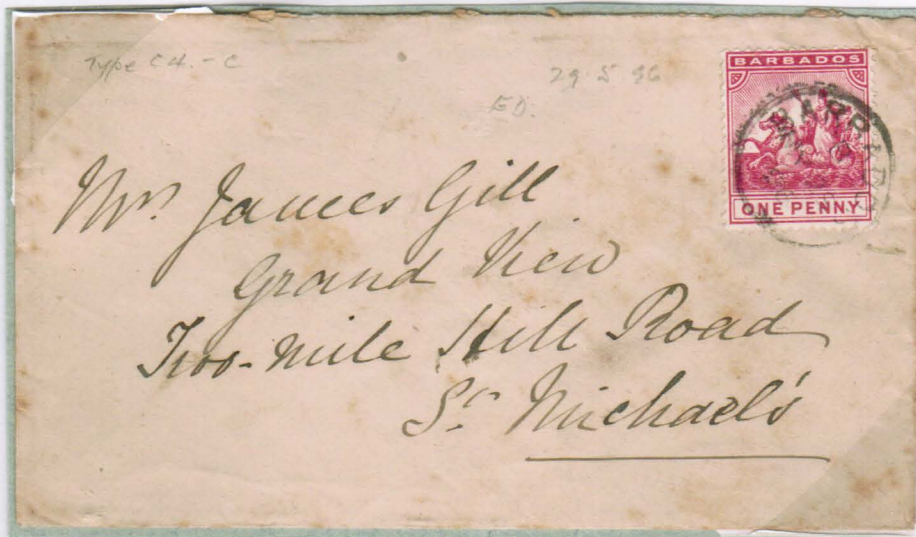 Type C4.-C
29 5 96
ED.
BARBADOS
BARBADOS
ONE PENNY
Mrs James Gill
Grand View
Two-mile Hill Road
St Michael's